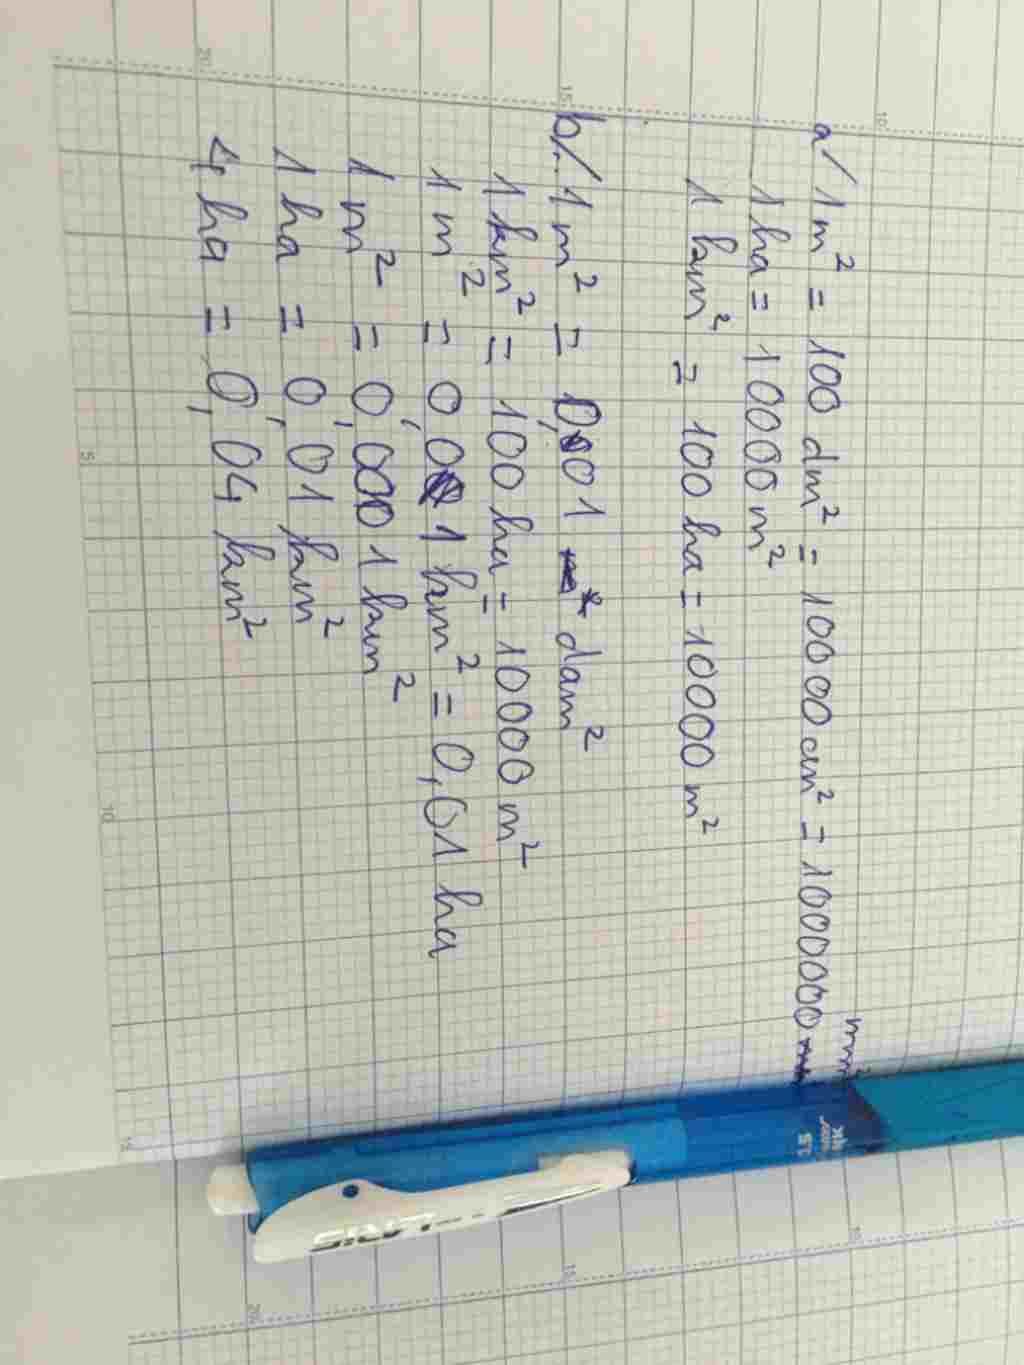 a/ 1 m² = 100 dm² = 10000 cm² = 1000000 mm²
1 ha = 10000 m²
1 km² = 100 ha = 10000 m²
b/. 1 m² = 0,01 dam²
1 km² = 100 ha = 10000 m²
1 m² = 0,01 hm² = 0,01 ha
1 m² = 0,0001 km²
1 ha = 0,01 km²
4 ha = 0,04 km²